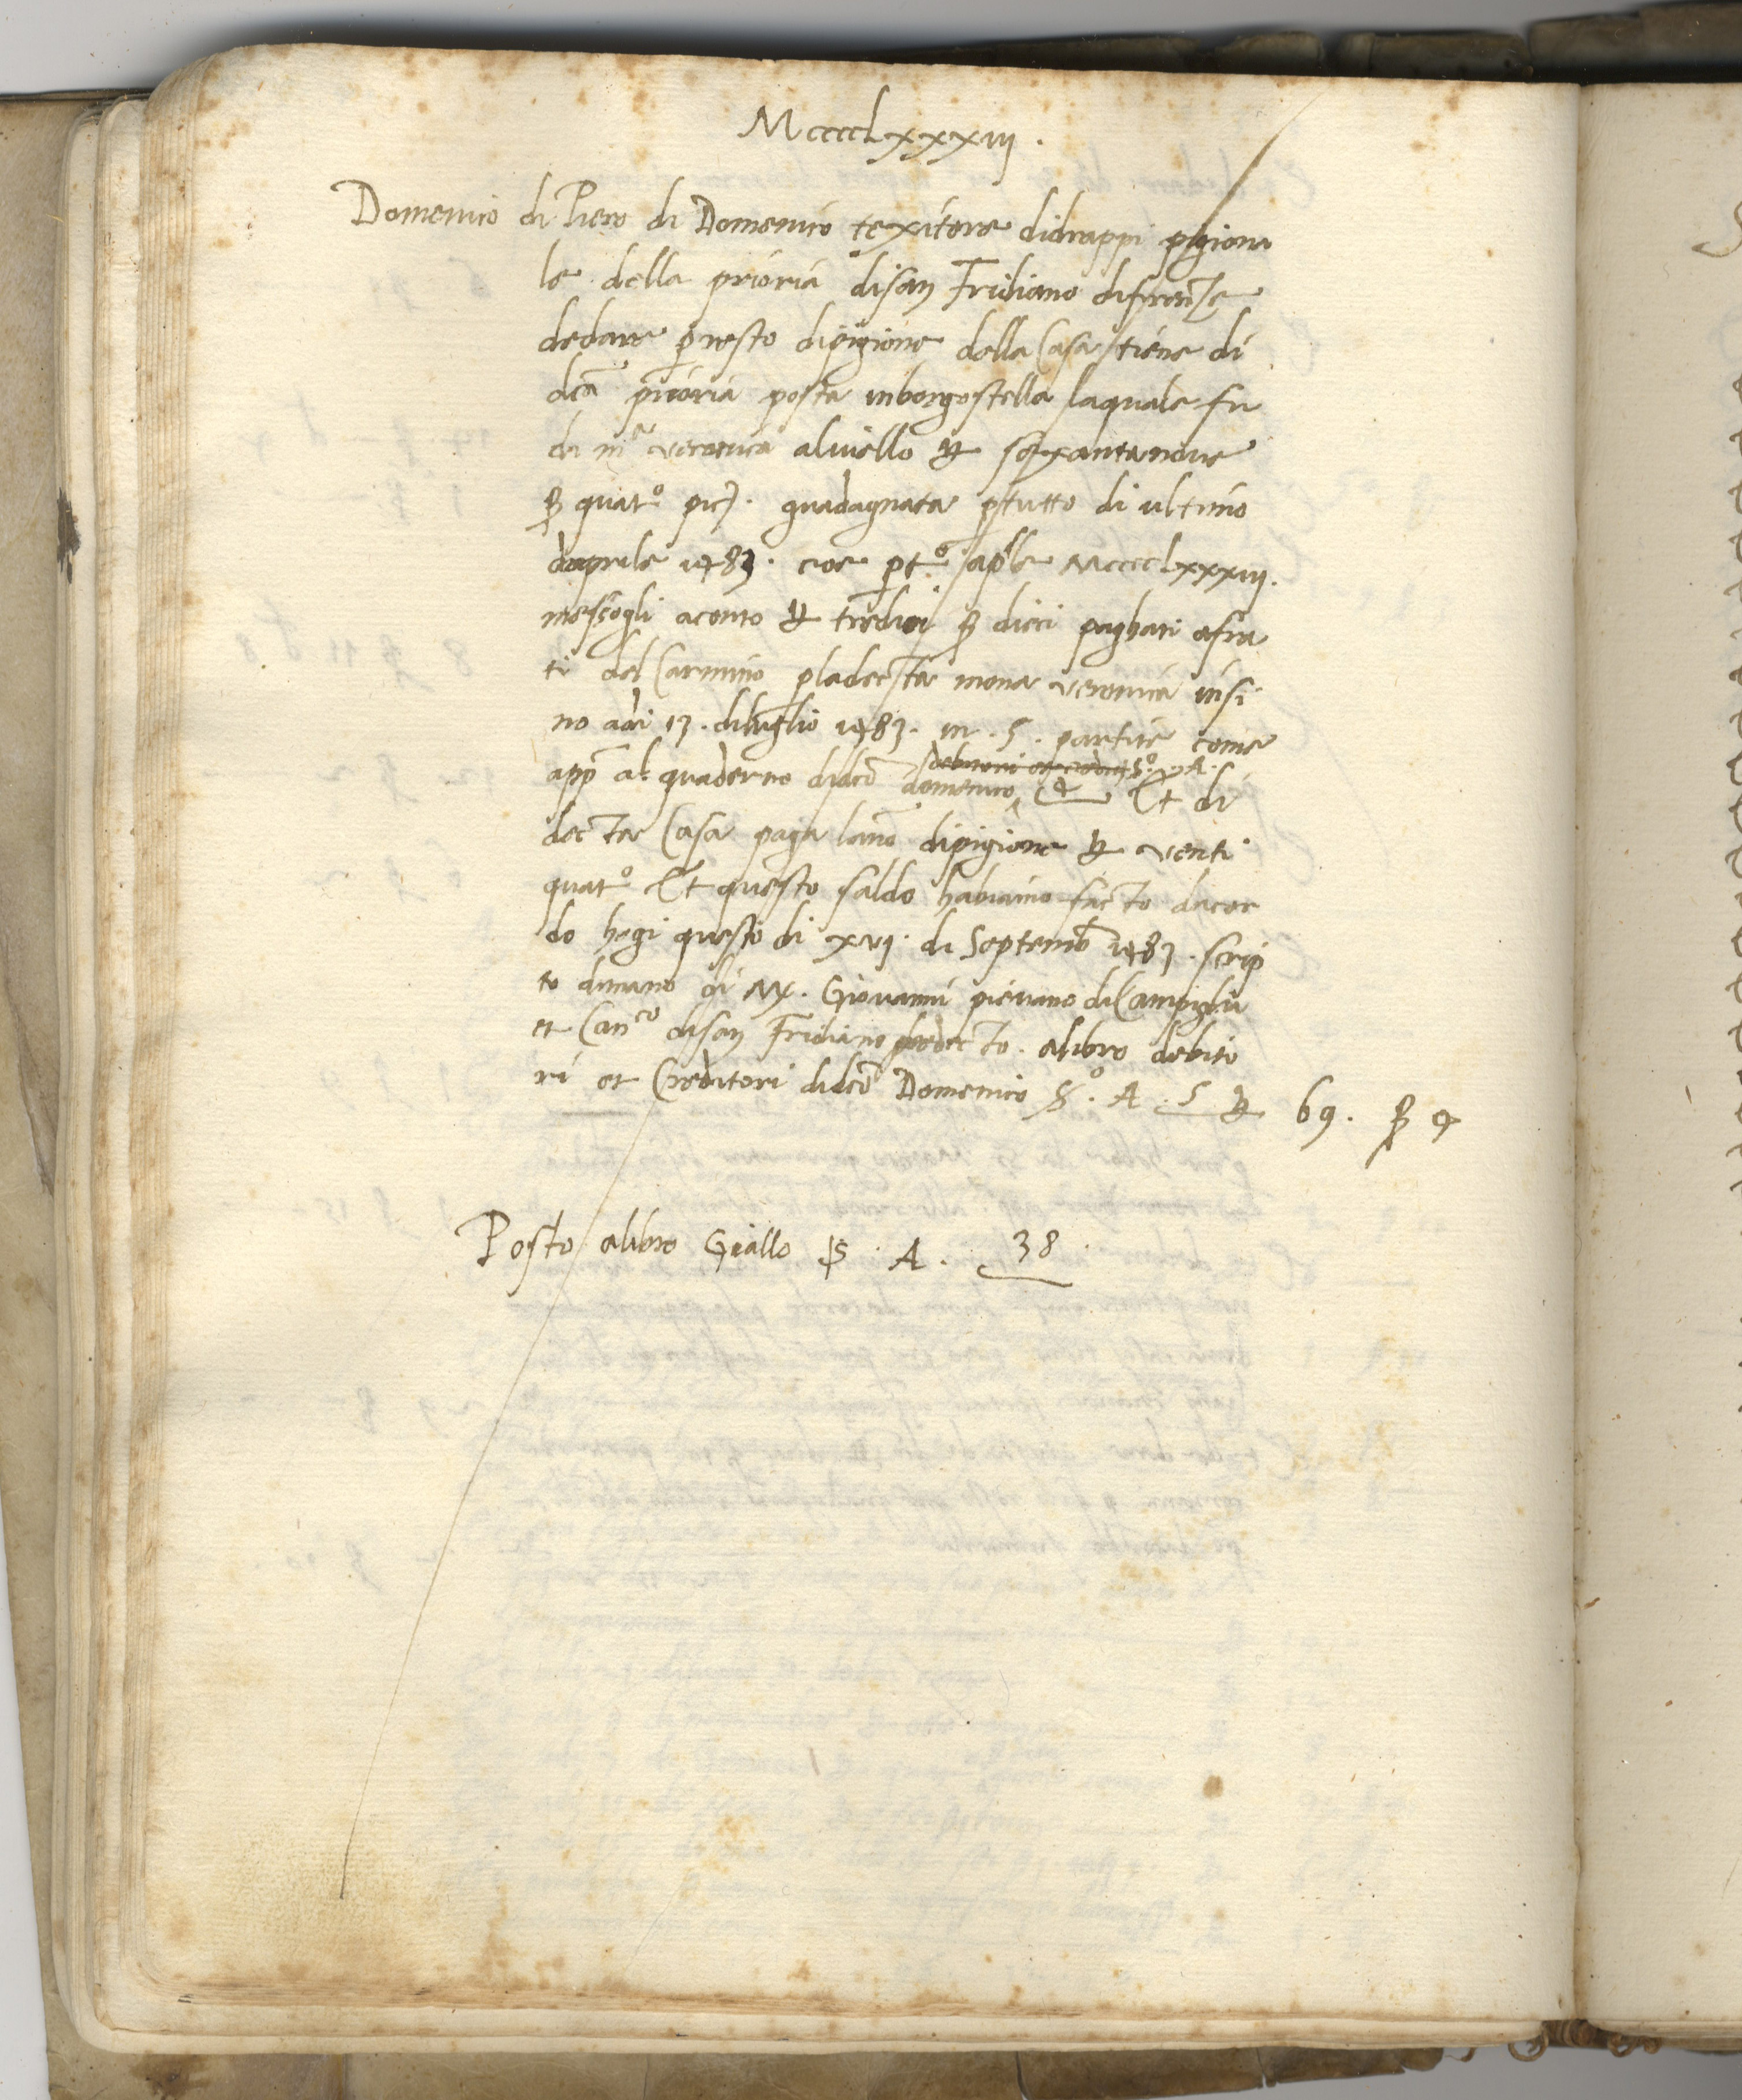 MccccLxxxiij.
Domenico di Piero di Domenico texitore didrappi pigiona
le della prioria disan Fridiano difirenze
dedare presto dipigione della Casa tiene di
dc̄a prioria posta inborgostella laquale fu
di mᵃ veronica alivello ₤ sexantanove
ß quatᵒ picj. guadagnata ptutto di ultimo
daprile 1483. cioe p̱t.ᵒ aple MccccLxxxiij.
messogli aconto ₤ tredici ß dieci paghati afra
ti del Carmino pladecta mona veronica insi
no adi 13. diluglio 1483. in .5. partite come
app̄ al quaderno didc̄o domenico debitori et creditori sᵒ A. 4 Et di
decta Casa paga lanno dipigione ₤ venti
quatᵒ Et questo saldo habiamo facto dacor
do hogi questo di xvj. di Septemb̄ 1483. scrip
to dimano di M. Giovanni pievano diCampigli
et Canᶜᵒ disan Fridiano predecto. alibro debito
ri et Creditori didc̄o Domenico sᵒ. A. 5 ₤ 69. ß 4
Posto alibro Giallo s. A. 38.